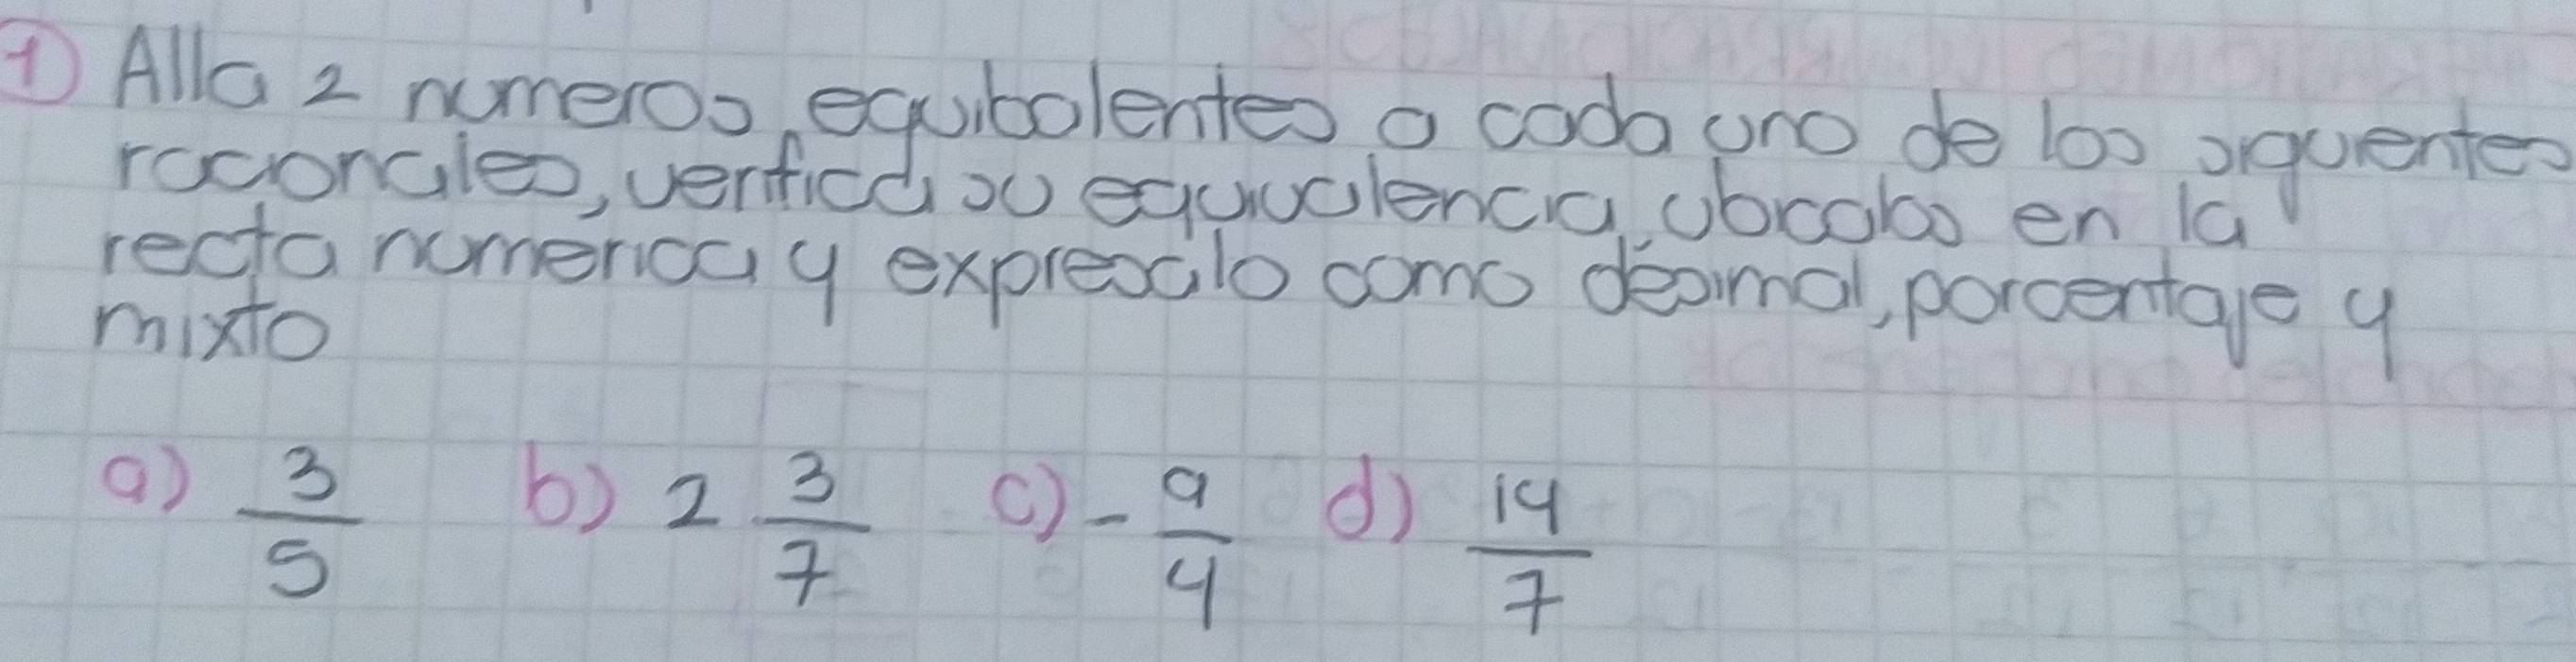 1 Alla 2 numeros, equibalentes a cada uno de los siguientes
racionales, verifica su equivalencia, ubicalos en la
recta numerica y expresalo como desimal, porcentaje y
mixto
a) 3/5 b) 2 3/7 c) - 9/4 d) 14/7